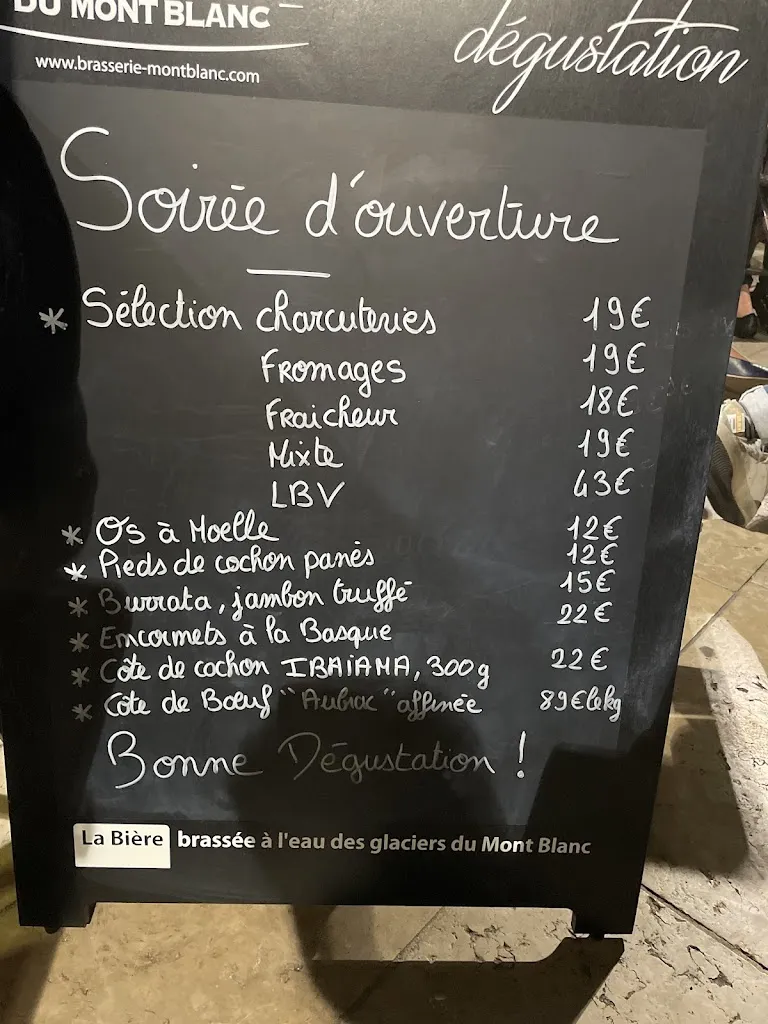 DU MONT BLANC
www.brasserie-montblanc.com
dégustation
Soirée d'ouverture
* Sélection charcuteries 19€
Fromages 19€
Fraicheur 18€
Mixte 19€
LBV 43€
* Os à Moelle 12€
* Pieds de cochon panés 12€
* Burrata, jambon truffé 15€
* Encornets à la Basque 22€
* Côte de cochon IBAIAMA, 300g 22€
* Côte de Bœuf "Aubrac" affinée 89€ le kg
Bonne Dégustation !
La Bière brassée à l'eau des glaciers du Mont Blanc